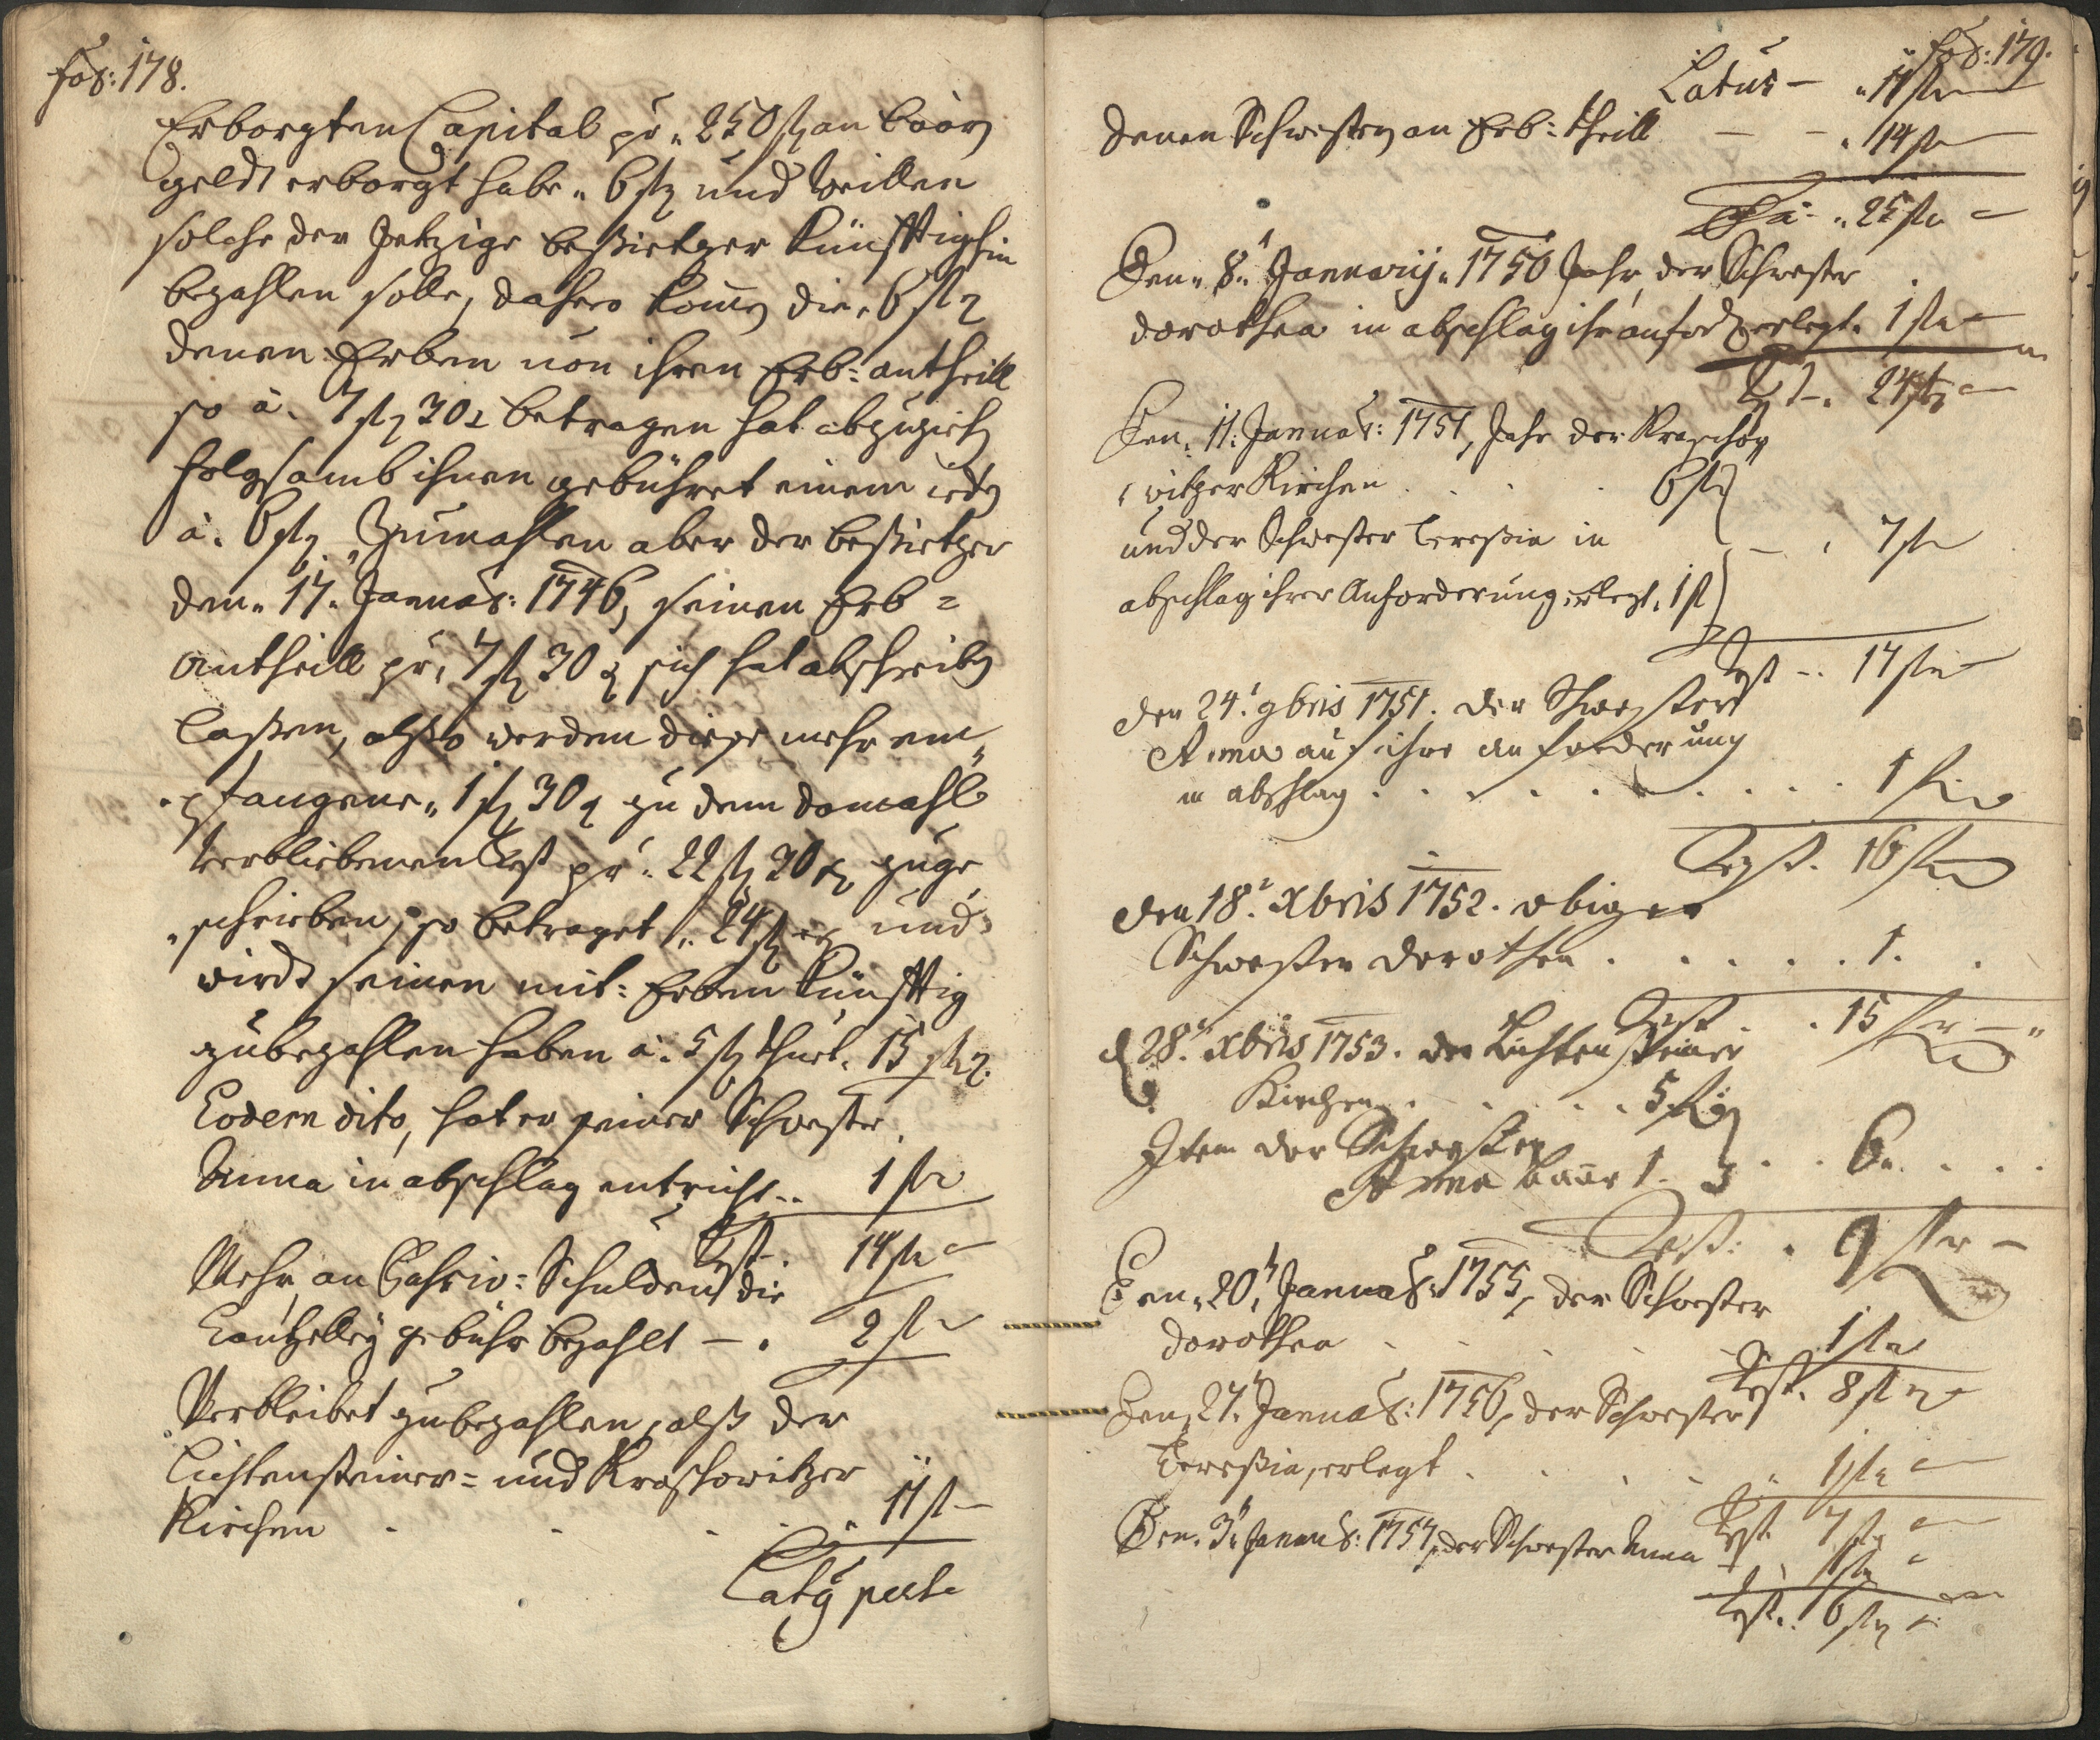 Fol: 178.
Erborgten Capital pr. 250 fl an baarn
geldt erborgt habe. 6 fl und weillen
solche der Jetzige beßietzer künfftighin
bezahlen solle, dahero kom̄en die. 6 fl
denen Erben von ihren Erb=antheill
so à. 7 fl 30 x betragen hat abzuziehen
folgsamb ihnen gebühret einem iedn
à. 6 fl. Zumahlen aber der beßietzer
den. 17. Januar: 1746, seinen Erb=
antheill pr. 7 fl 30 x sich hat abschreiben
laßen, alßo werden diese mehr em=
pfangene. 1 fl 30 x zu dem damahls
verbliebenen Rest pr. 22 fl 30 x zuge
schrieben, so betraget. 24 fl und
wirdt seinen mit=Erben künfftig
zubezahlen haben à. 5 fl thuet. 15 fl
Eodem dito, hat er seiner Schwester
Anna in abschlag entricht.. 1 fl
Rest. 14 fl
Mehr, an Schulden die
Cantzelleÿ gebühr bezahlt — . 2 fl
Verbleibet zubezahlen, alß der
Lichtensteiner= und Kraschowitzer
Kirchen . . . . 11 fl —
Latus

Fol: 179.
Latus — . 11 fl
denen Schwestern an Erb=theill — — . 14 fl
. 25 fl
Den. 8. Januarij. 1750 Jahr, der Schwester
dorothea in abschlag ihr anford. erlegt. 1 fl
Rest. 24 fl
Den. 11. Januar: 1751, Jahr der Kraschow
witzer Kirchen . . . . 6 fl
und der Schwester Teressia in — . 7 fl
abschlag ihrer Anforderung erlegt. 1 fl
Rest .. 17 fl
den 24. 9bris 1751. der Schwester
Anna auf ihre anforderung
in abschlag . . . . . . . . . 1 fl
Rest. 16 fl
den 18. Xbris 1752. obiger
Schwester dorothea . . . . . 1. .
Rest . . 15 fl —
d 28. Xbris 1753. der Lichtensteiner
Kirchen . . . . . 5 fl
Item der Schwester . . 6. . . .
Anna baar 1.
Rest. . 9 fl —
Den. 20. Januar: 1755, der Schwester
dorothea . . . . 1 fl
Rest. 8 fl
Den. 27. Januar: 1756, der Schwester
Teressia, erlegt . . . . 1 fl
Rest. 7 fl
Den. 3. Januar: 1757, der Schwester Anna 1 fl
Rest. 6 fl